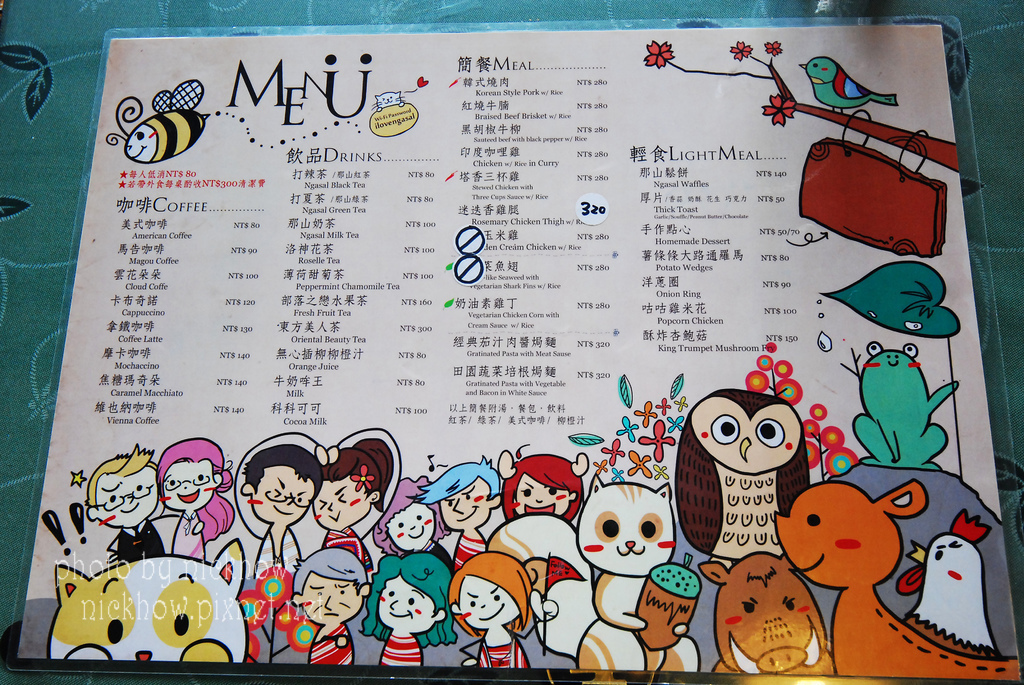 MENÜ
Wi-Fi Password
ilovengasal
★每人低消NT$ 80
★若帶外食每桌酌收NT$300清潔費
咖啡COFFEE
美式咖啡 NT$ 80
American Coffee
馬告咖啡 NT$ 90
Magou Coffee
雲花朵朵 NT$ 100
Cloud Coffe
卡布奇諾 NT$ 120
Cappuccino
拿鐵咖啡 NT$ 130
Coffee Latte
摩卡咖啡 NT$ 140
Mochaccino
焦糖瑪奇朵 NT$ 140
Caramel Macchiato
維也納咖啡 NT$ 140
Vienna Coffee
飲品DRINKS
打辣茶 /那山紅茶 NT$ 80
Ngasal Black Tea
打夏茶 /那山綠茶 NT$ 80
Ngasal Green Tea
那山奶茶 NT$ 100
Ngasal Milk Tea
洛神花茶 NT$ 100
Roselle Tea
薄荷甜菊茶 NT$ 100
Peppermint Chamomile Tea
部落之戀水果茶 NT$ 160
Fresh Fruit Tea
東方美人茶 NT$ 300
Oriental Beauty Tea
無心插柳柳橙汁 NT$ 80
Orange Juice
牛奶哞王 NT$ 80
Milk
科科可可 NT$ 100
Cocoa Milk
簡餐MEAL
韓式燒肉 NT$ 280
Korean Style Pork w/ Rice
紅燒牛腩 NT$ 280
Braised Beef Brisket w/ Rice
黑胡椒牛柳 NT$ 280
Sauteed beef with black pepper w/ Rice
印度咖哩雞 NT$ 280
Chicken w/ Rice in Curry
塔香三杯雞 NT$ 280
Stewed Chicken with
Three Cups Sauce w/ Rice
迷迭香雞腿 320
Rosemary Chicken Thigh w/
玉米雞 NT$ 280
den Cream Chicken w/ Rice
菜魚翅 NT$ 280
like Seaweed with
Vegetarian Shark Fins w/ Rice
奶油素雞丁 NT$ 280
Vegetarian Chicken Corn with
Cream Sauce w/ Rice
經典茄汁肉醬焗麵 NT$ 320
Gratinated Pasta with Meat Sauce
田園蔬菜培根焗麵 NT$ 320
Gratinated Pasta with Vegetable
and Bacon in White Sauce
以上簡餐附湯、餐包、飲料
紅茶/ 綠茶/ 美式咖啡/ 柳橙汁
輕食LIGHTMEAL
那山鬆餅 NT$ 140
Ngasal Waffles
厚片/香蒜 奶酥 花生 巧克力 NT$ 50
Thick Toast
Garlic/Souffle/Peanut Butter/Chocolate
手作點心 NT$ 50/70
Homemade Dessert
薯條條大路通羅馬 NT$ 80
Potato Wedges
洋蔥圈 NT$ 90
Onion Ring
咕咕雞米花 NT$ 100
Popcorn Chicken
酥炸杏鮑菇 NT$ 150
King Trumpet Mushroom Fry
photo by nickhow
nickhow.pixnet.net